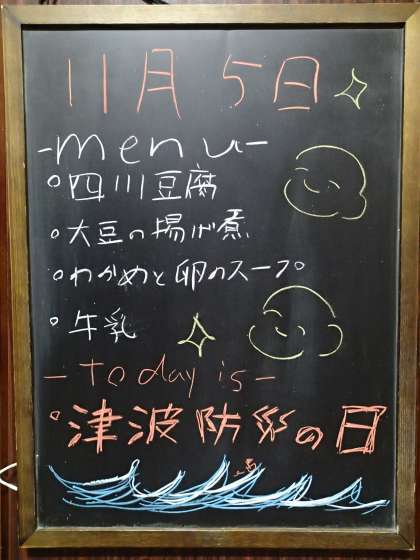 11月5日
-menu-
。四川豆腐
。大豆の揚げ煮
。わかめと卵のスープ
。牛乳
-today is-
。津波防災の日